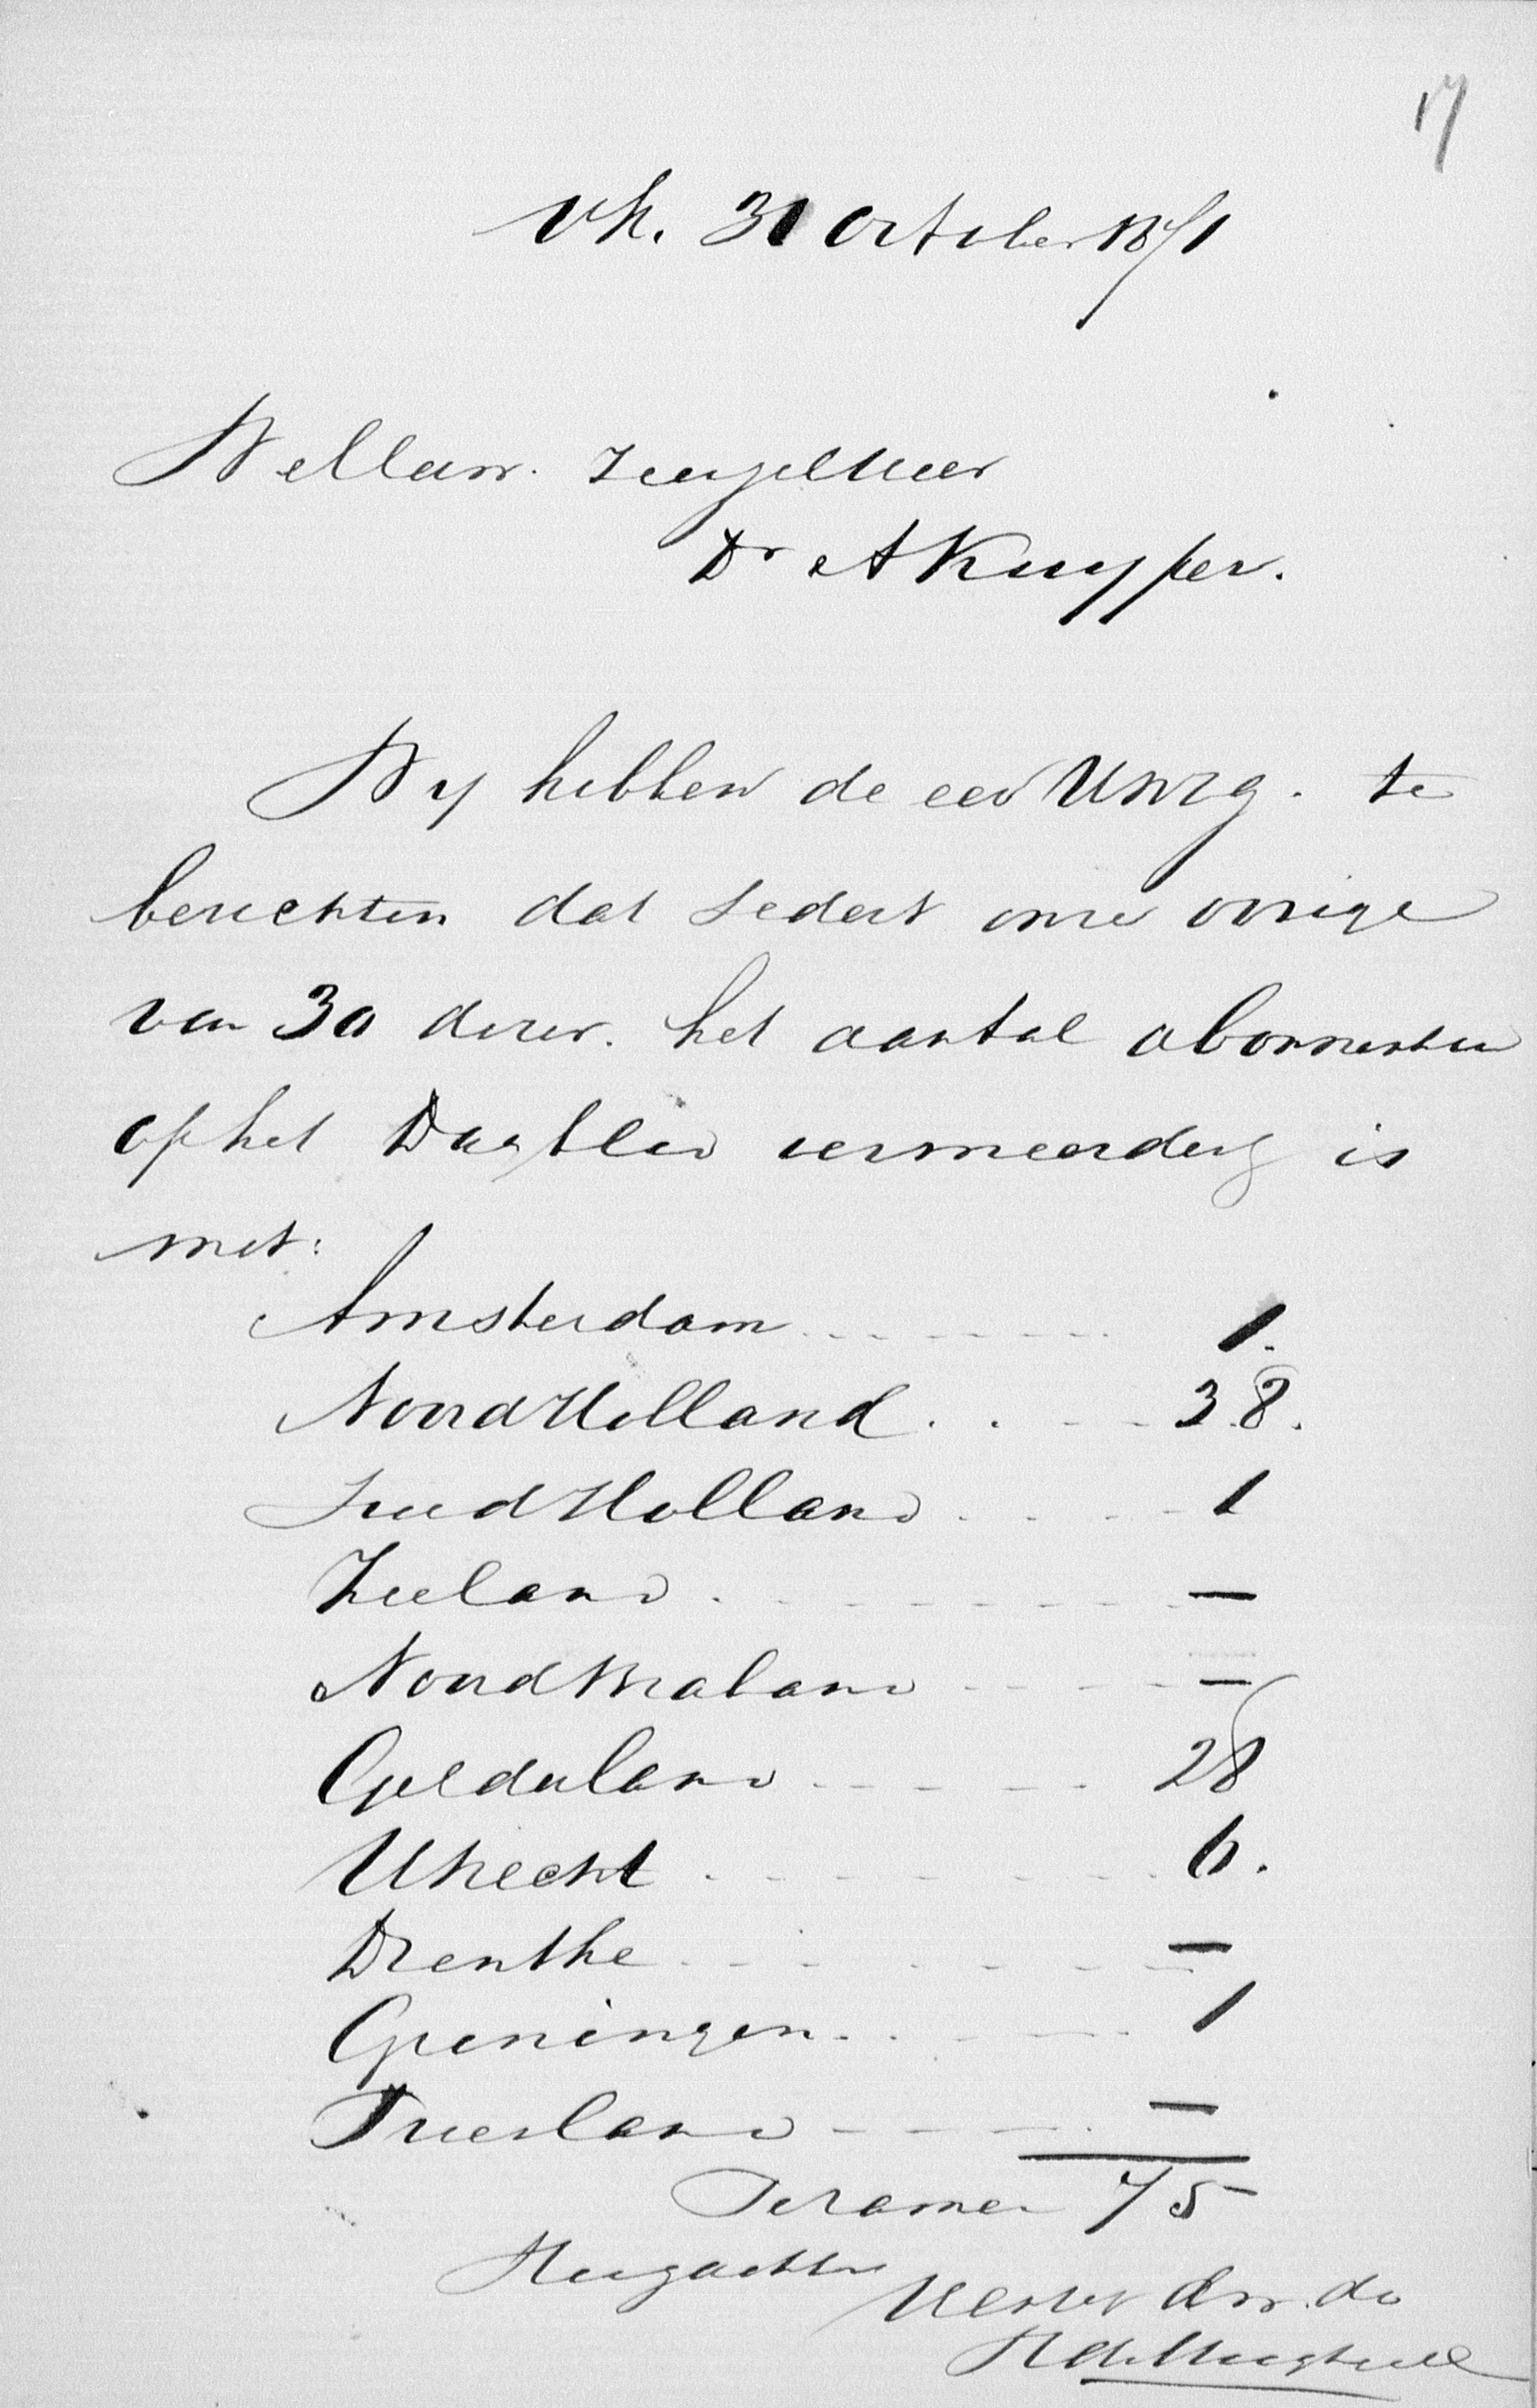 17
Vk. 31 October 1871
WelEerw. ZeergelHeer
Dr A Kuyper.
Wy hebben de eer UWZg. te
berichten dat sedert onze vorige
van 30 dezer. het aantal abonnenten
op het Dagblad vermeerderd is
met:
Amsterdam 1.
NoordHolland 38.
ZuidHolland 1
Zeeland —
NoordBraband —
Gelderland 28
Utrecht 6.
Drenthe —
Groningen 1
Friesland —
Te zamen 75
Hoogachtend
UEerw Dw. dr